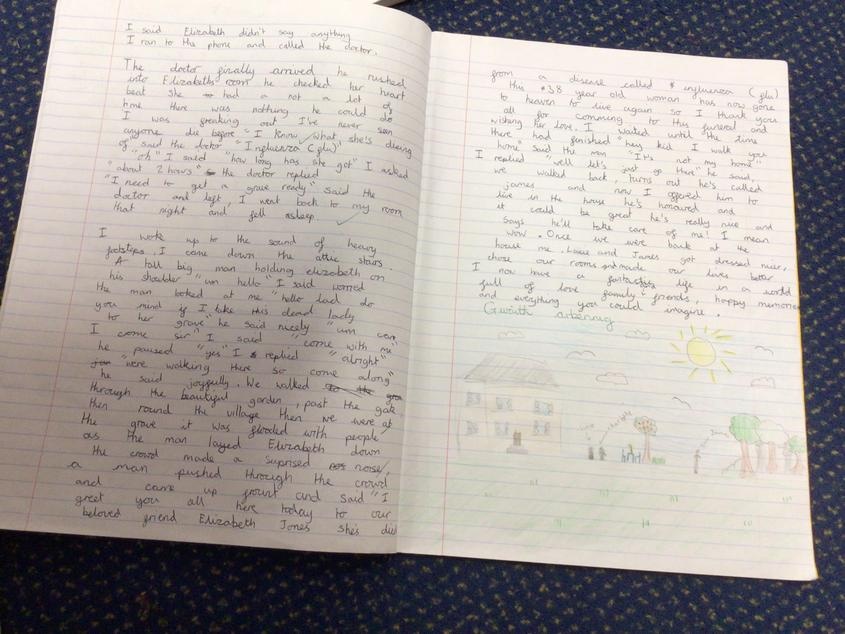 I said Elizabeth didn't say anything
I ran to the phone and called the doctor.
The doctor finally arrived he rushed
into Elizabeths room he checked her heart
beat She had a not a lot of
time there was nothing he could do
I was freaking out I've never seen
anyone die before "I know what she's dieing
of" said the doctor "Influenza (flu)"
"oh" I said "how long has she got" I asked
"about 2 hours" the doctor replied
"I need to get a grave ready" said the
doctor and left, I went back to my room
that night and fell asleep.
I woke up to the sound of heavy
footsteps, I came down the attic stairs.
A tall big man holding elizabeth on
his shoulder "um hello" I said worried
the man looked at me "hello lad do
you mind if I take this dead lady
to her grave" he said nicely "um can
I come sir" I said "come with me"
he paused "yes" I replied "alright"
"were walking there so come along"
he said joyfully. We walked to the
through the beautiful garden, past the gate
then round the village then we were at
the grave it was flooded with people,
as the man layed Elizabeth down
the crowd made a suprised noise,
a man pushed through the crowd
and came up frount and said "I
greet you all here today to our
beloved friend Elizabeth Jones she's died
from a disease called influenza (flu)
this 38 year old woman has now gone
to heaven to live again so I thank you
all for comming to this funeral and
wishing her love. I waited until the time
there had finished "hey kid I walk you
home" said the man "It's not my home"
I replied "well let's just go there" he said,
we walked back turns out he's called
james and now I offered him to
live in the house he's honoured and
it could be great he's really nice and
says he'll take care of me! I mean
wow. Once we were back at the
house me, and James got dressed nicer,
chose our rooms and made our lives better
I now have a fantastic life in a world
full of love family friends, happy memories
and everything you could imagine.